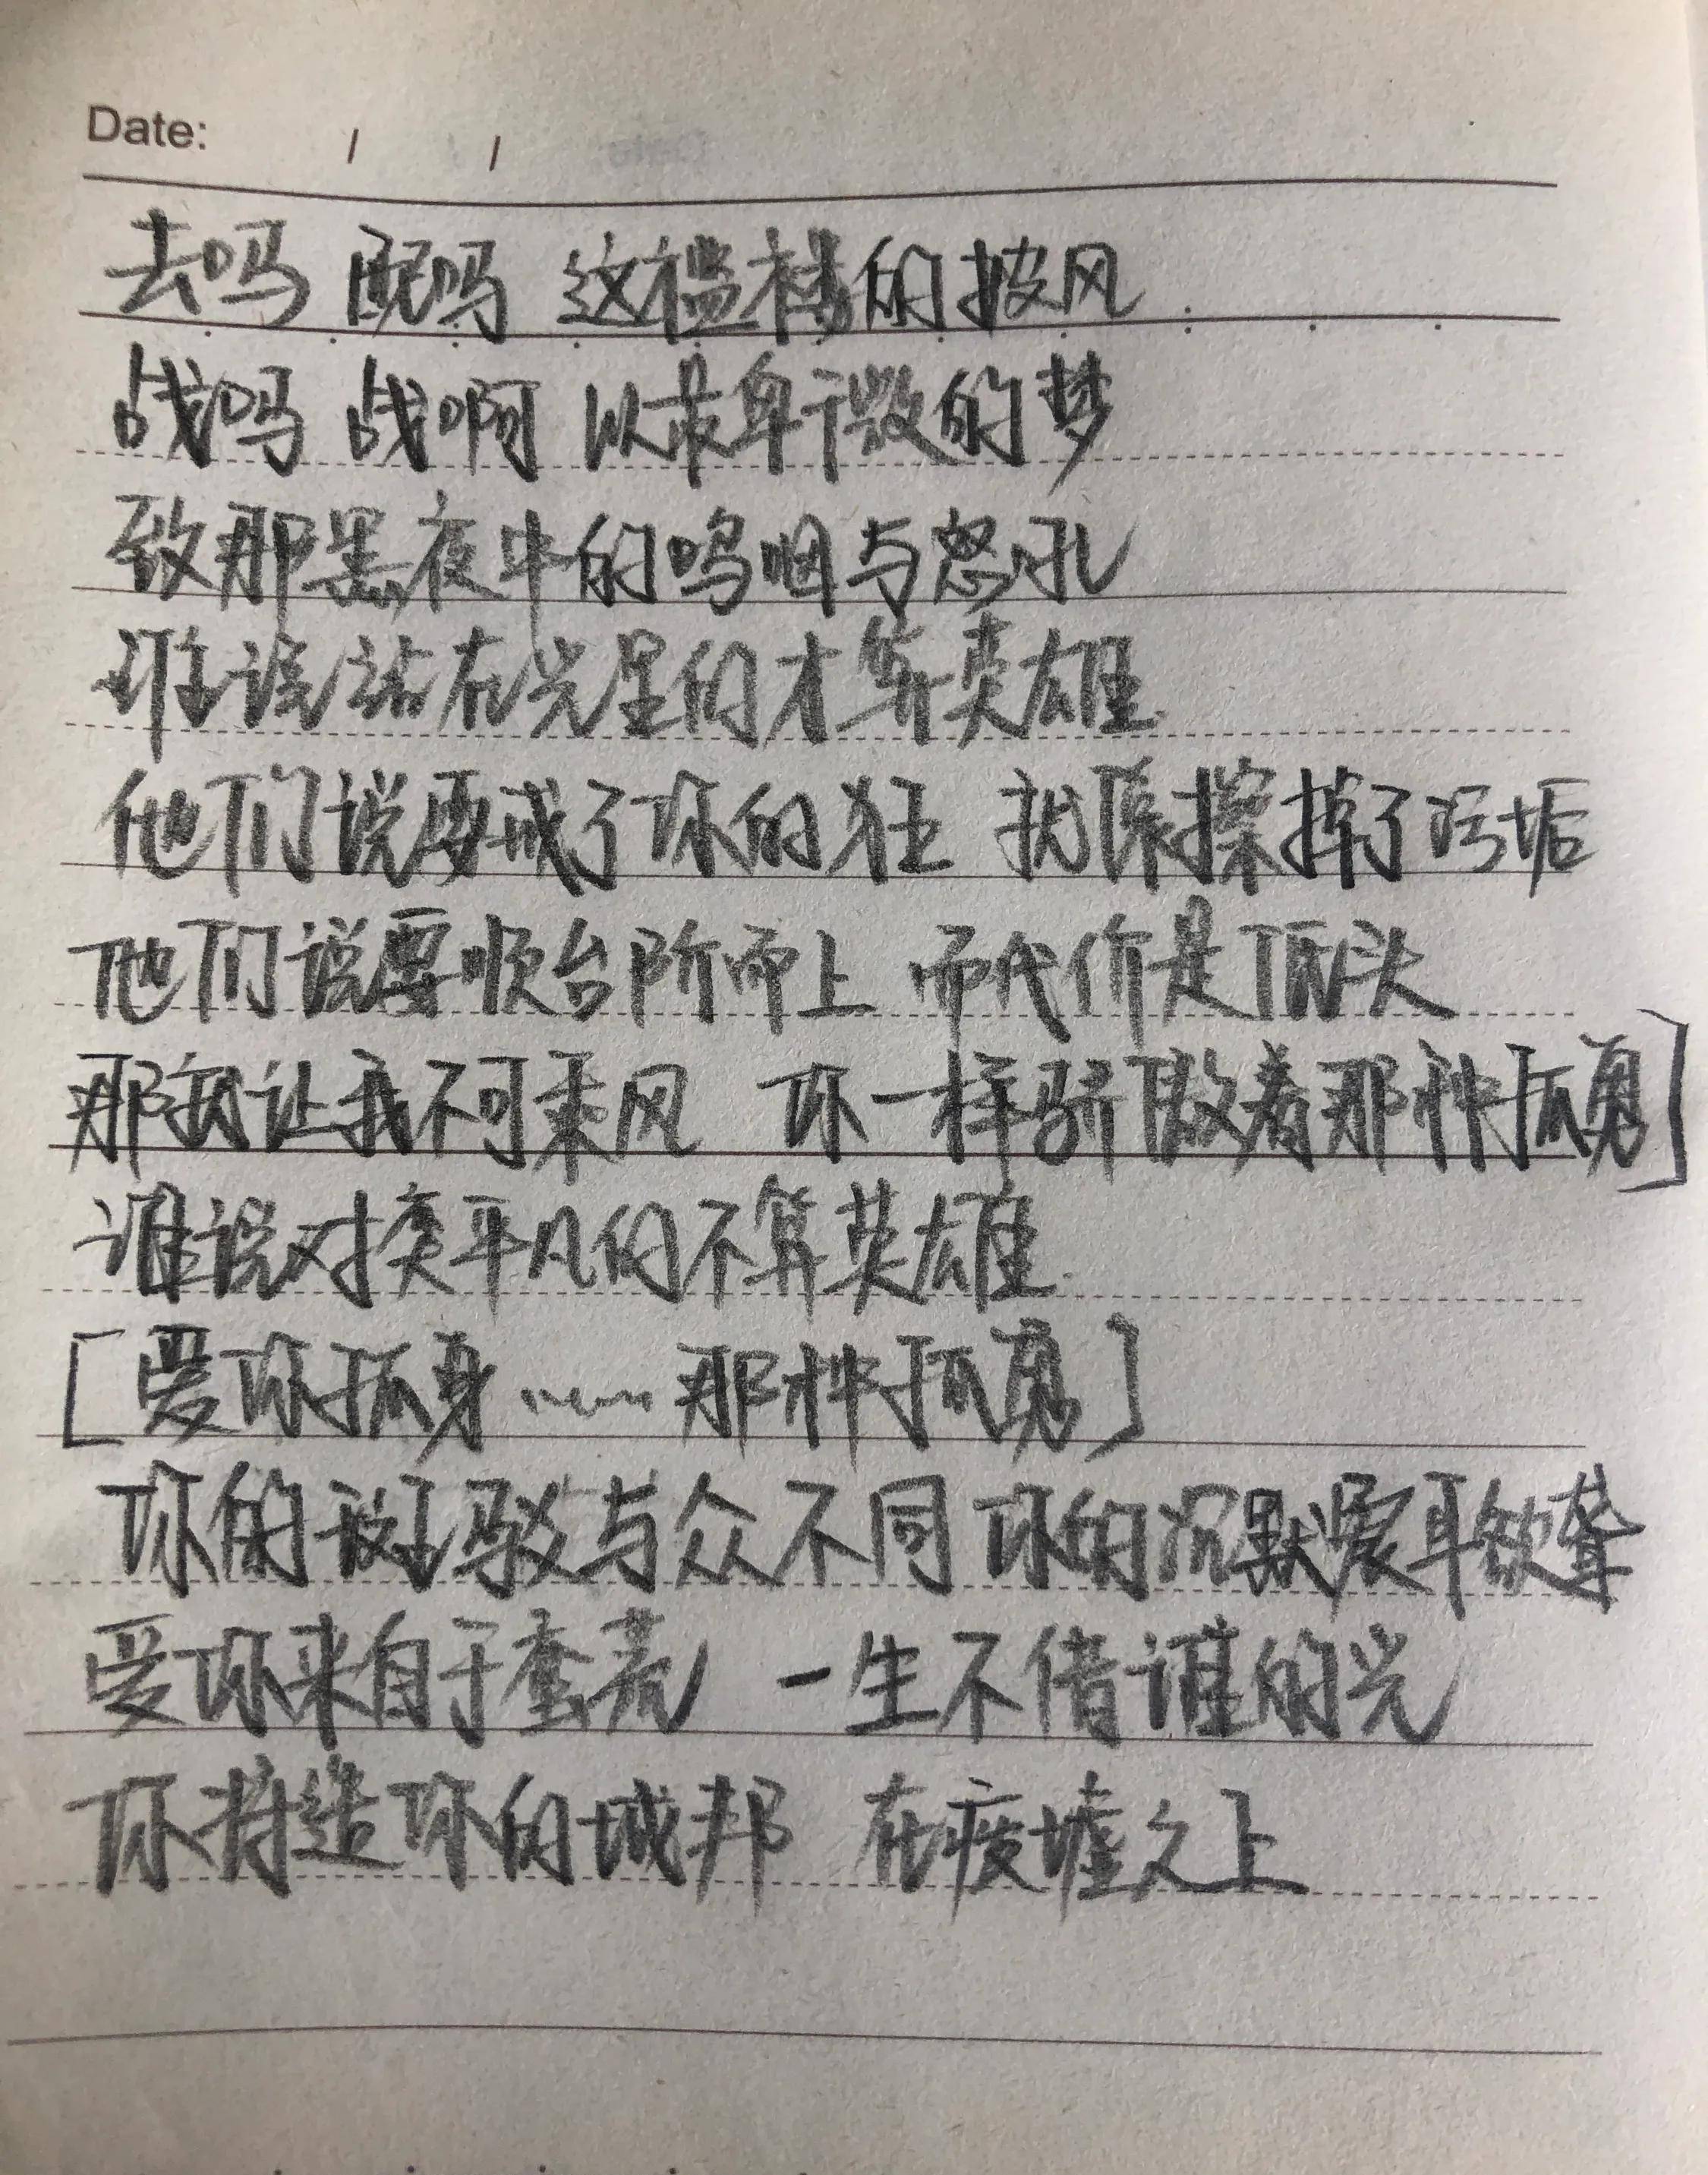 Date: / /
去吗 配吗 这褴褛的披风
战吗 战啊 以最卑微的梦
致那黑夜中的呜咽与怒吼
谁说站在光里的才算英雄
他们说要戒了你的狂 就像擦掉了污垢
他们说要顺台阶而上 而代价是低头
那就让我不可乘风 你一样骄傲着那种孤勇]
谁说对弈平凡的不算英雄
[爱你孤身……那种孤勇]
你的斑驳与众不同 你的沉默震耳欲聋
爱你来自于蛮荒 一生不借谁的光
你将造你的城邦 在废墟之上